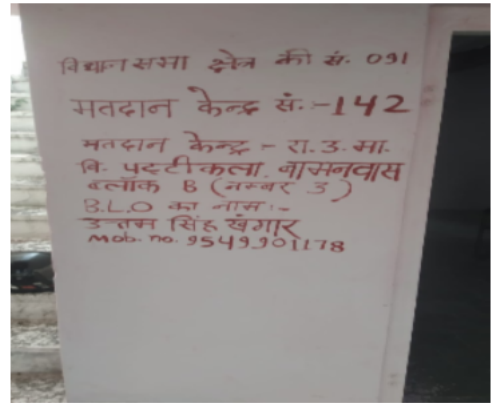 विधानसभा क्षेत्र की सं. 091
मतदान केन्द्र सं.:-142
मतदान केन्द्र :- रा.उ.मा.
वि. पट्टीकला, बामनवास
ब्लॉक B (नम्बर 3)
B.L.O का नाम :-
उत्तम सिंह खंगार
Mob. no. 9549901178